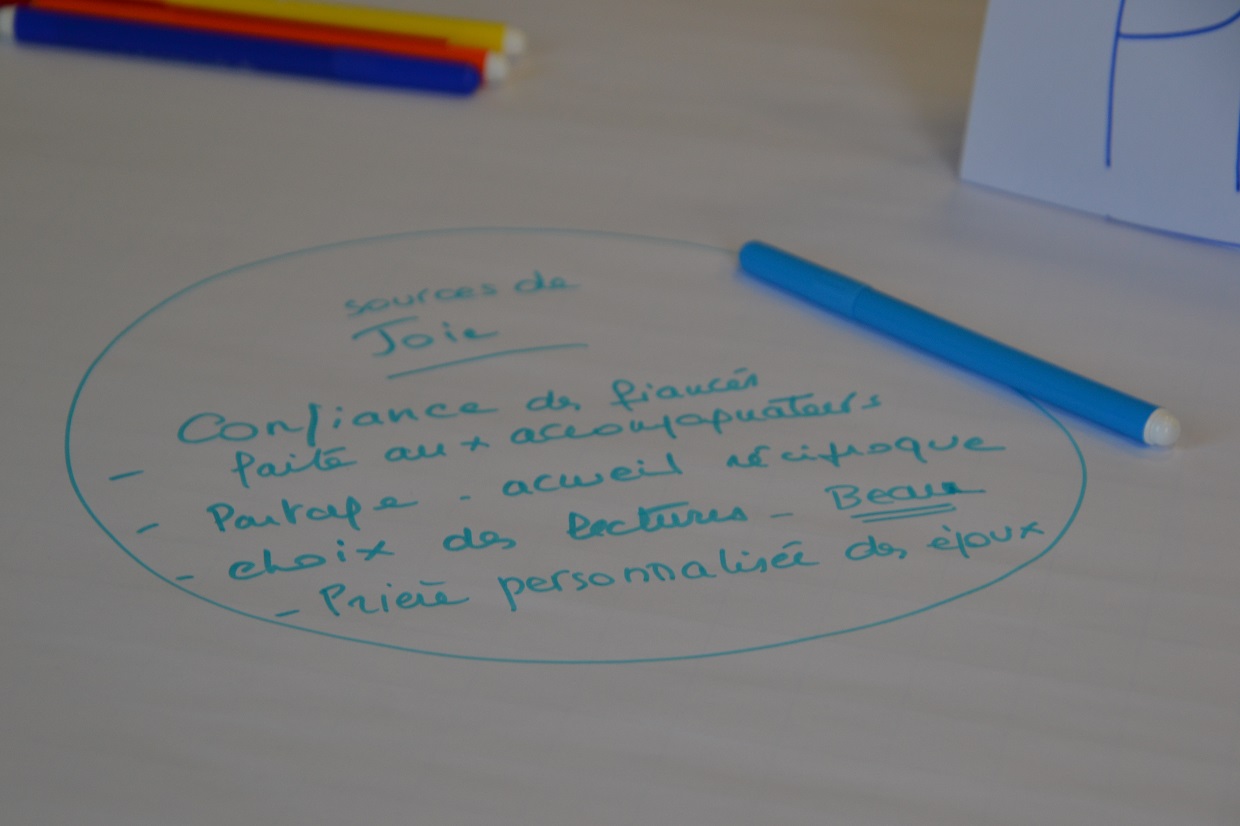 sources de
Joie
Confiance des fiancés
- faite aux accompagnateurs
- Partage - accueil réciproque
- choix des lectures - Beau
- Prière personnalisée des époux